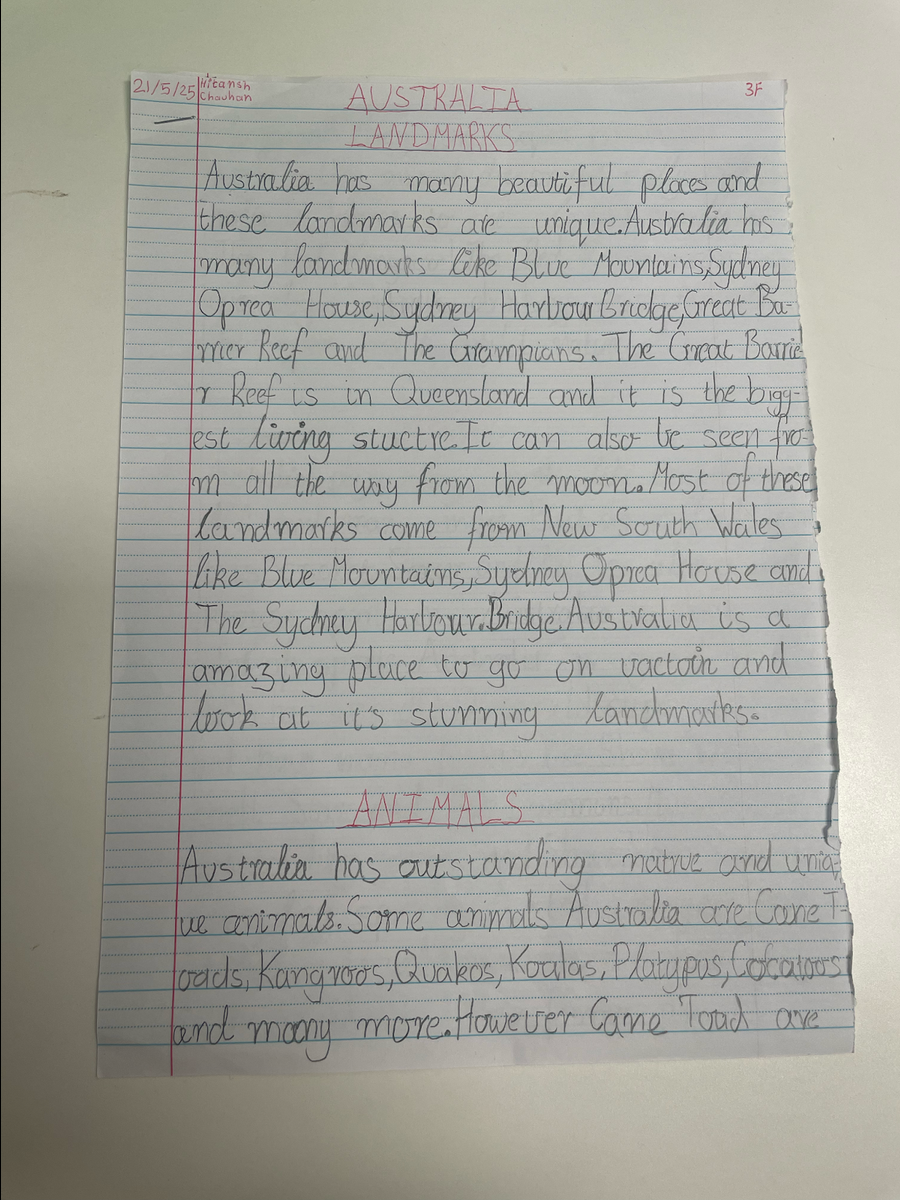 21/5/25 Hitansh Chauhan 3F
AUSTRALIA
LANDMARKS
Australia has many beautiful places and
these landmarks are unique.Australia has
many landmarks like Blue Mountains,Sydney
Oprea House,Sydney Harbour Bridge,Great Ba-
rrier Reef and The Grampians. The Great Barrie
r Reef is in Queensland and it is the bigg-
est living stuctre.It can also be seen fro-
m all the way from the moon.Most of these
landmarks come from New South Wales
like Blue Mountains,Sydney Oprea House and
The Sydney Harbour.Bridge.Australia is a
amazing place to go on vactoin and
look at it's stunning landmarks.
ANIMALS
Australia has outstanding native and uniq-
ue animals.Some animals Australia are Cane T-
oads,Kangroos,Quakos,Koalas,Platypus,Cocatoos
and many more.However Cane Toad are